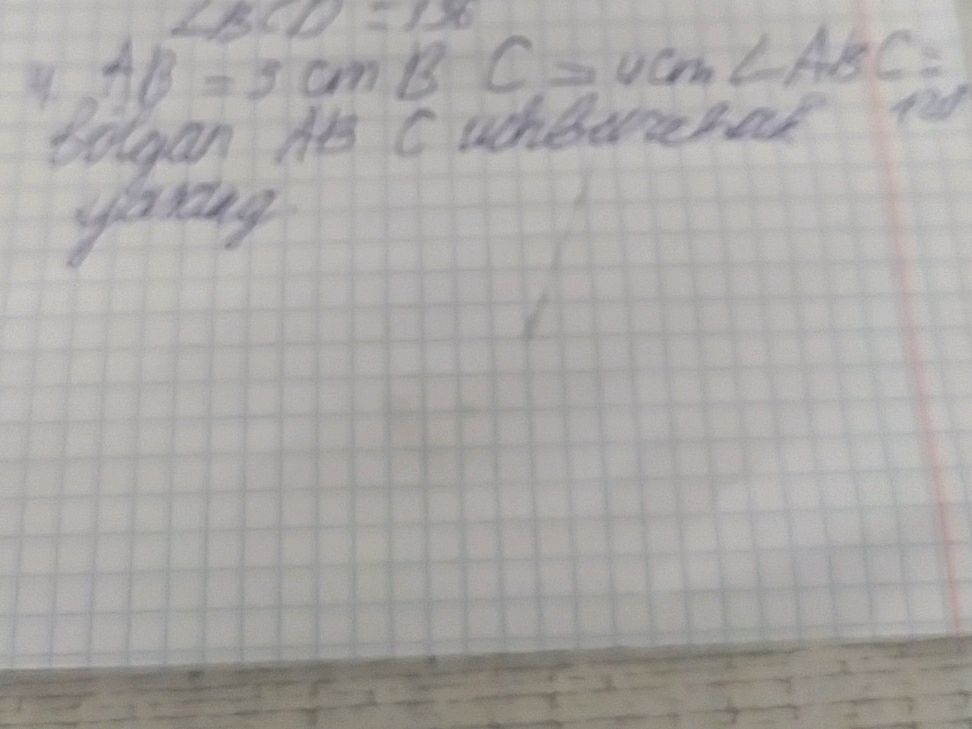 ∠BCD = 136
4. AB = 3 cm B C = 4 cm ∠ABC =
bolgan AB C uchburchak
yasang